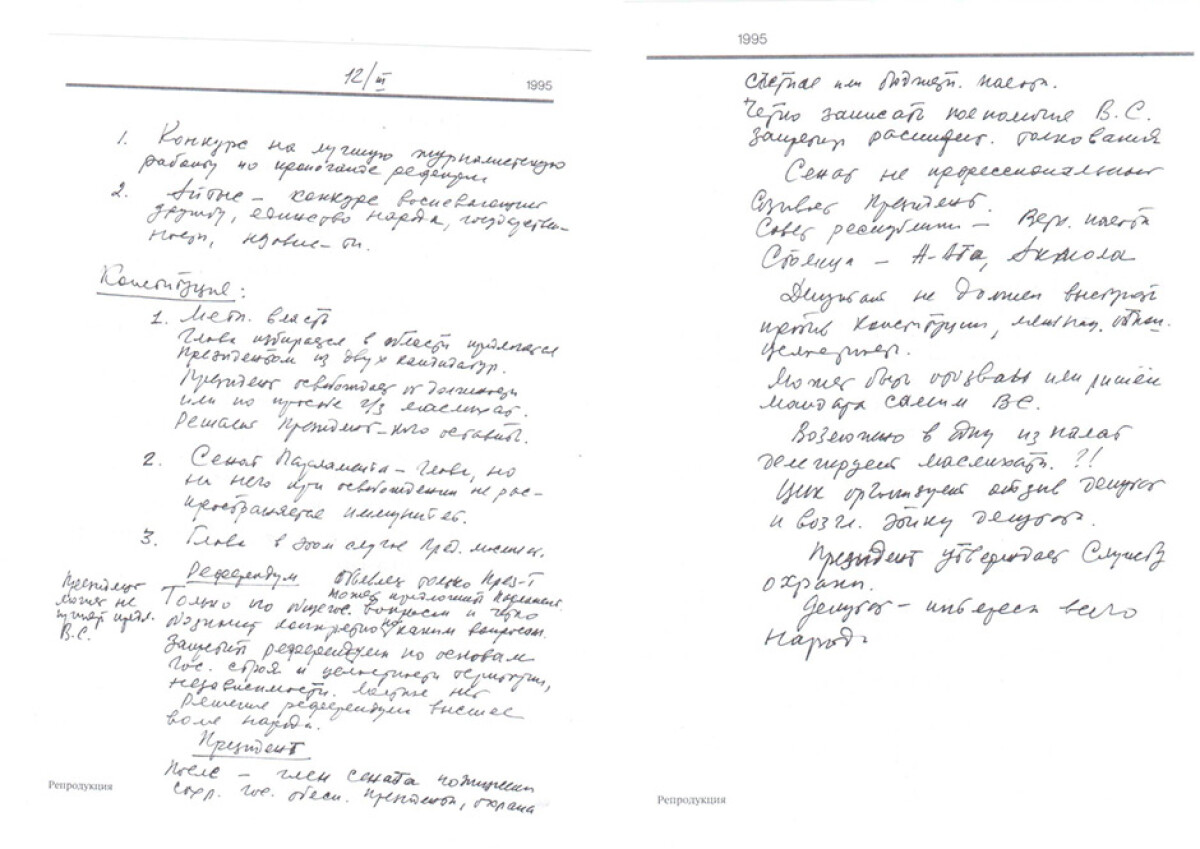 12/III
1995
1. Конкурс на лучшую журналистскую
работу по пропаганде референдум
2. Айтыс – конкурс воспевающий
дружбу, единство народа, государствен-
ности, независ-ти.
Конституция:
1. Местн. власть
Глава избирается в области предлагается
Президентом из двух кандидатур.
Президент освобождает от должности
или по просьбе 2/3 маслихат.
Решает Президент – кого оставить.
2. Сенат Парламента – глава, но
на него при освобождении не рас-
пространяется иммунитет.
3. Глава в этом случае Пред. маслих.
Референдум объявляет только През-т
может предложить Парламент.
Президент
может не
принять предл.
В.С.
Только по общегос. вопросам и четко
конкретно по каким вопросам.
Запретить референдум по основам
гос. строя и целостности территории,
независимости. Местные нет
Решение референдум высшее
воле народа.
Президент
После – член сената пожизненно
сохр. гос. обесп. Президента, охрана
Репродукция
1995
или бюджетн.
Четко записать полномочия В.С.
Запретить толкования
Сенат не профессиональный
Созывает Президент.
Совет республики – Верх. палата
Столица – А-Ата, Акмола
Депутат не должен выступать
против Конституции, межнац. отнош.
целостности.
Может быть отозван или лишён
мандата самим ВС.
Возможно в одну из палат
делегируют маслихаты. ?!
Цик организует отзыв депутат
и возгл. этику депутата.
Президент утверждает Службу
охраны.
Депутат – интересы всего
народа
Репродукция